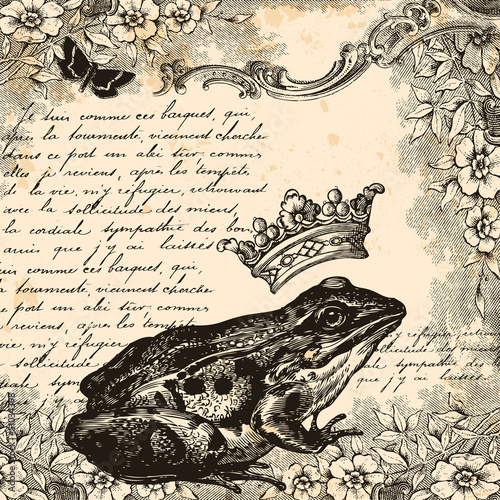 Je suis comme ces barques, qui,
après la tourmente viennent chercher
dans ce port un abi sûr: comme
elles je reviens, après les tempêtes
de la vie, m'y réfugier, retrouvant
avec la sollicitude des miens,
la cordiale sympathie des bons
amis que j'y ai laissés
suis comme ces barques, qui,
la tourmente viennent chercher
reviens, après les tempêtes
m'y réfugier
sollicitude
symp
réfugier, retrouvant
sollicitude des miens,
sympathie des bons
j'y ai laissés
Adobe Stock